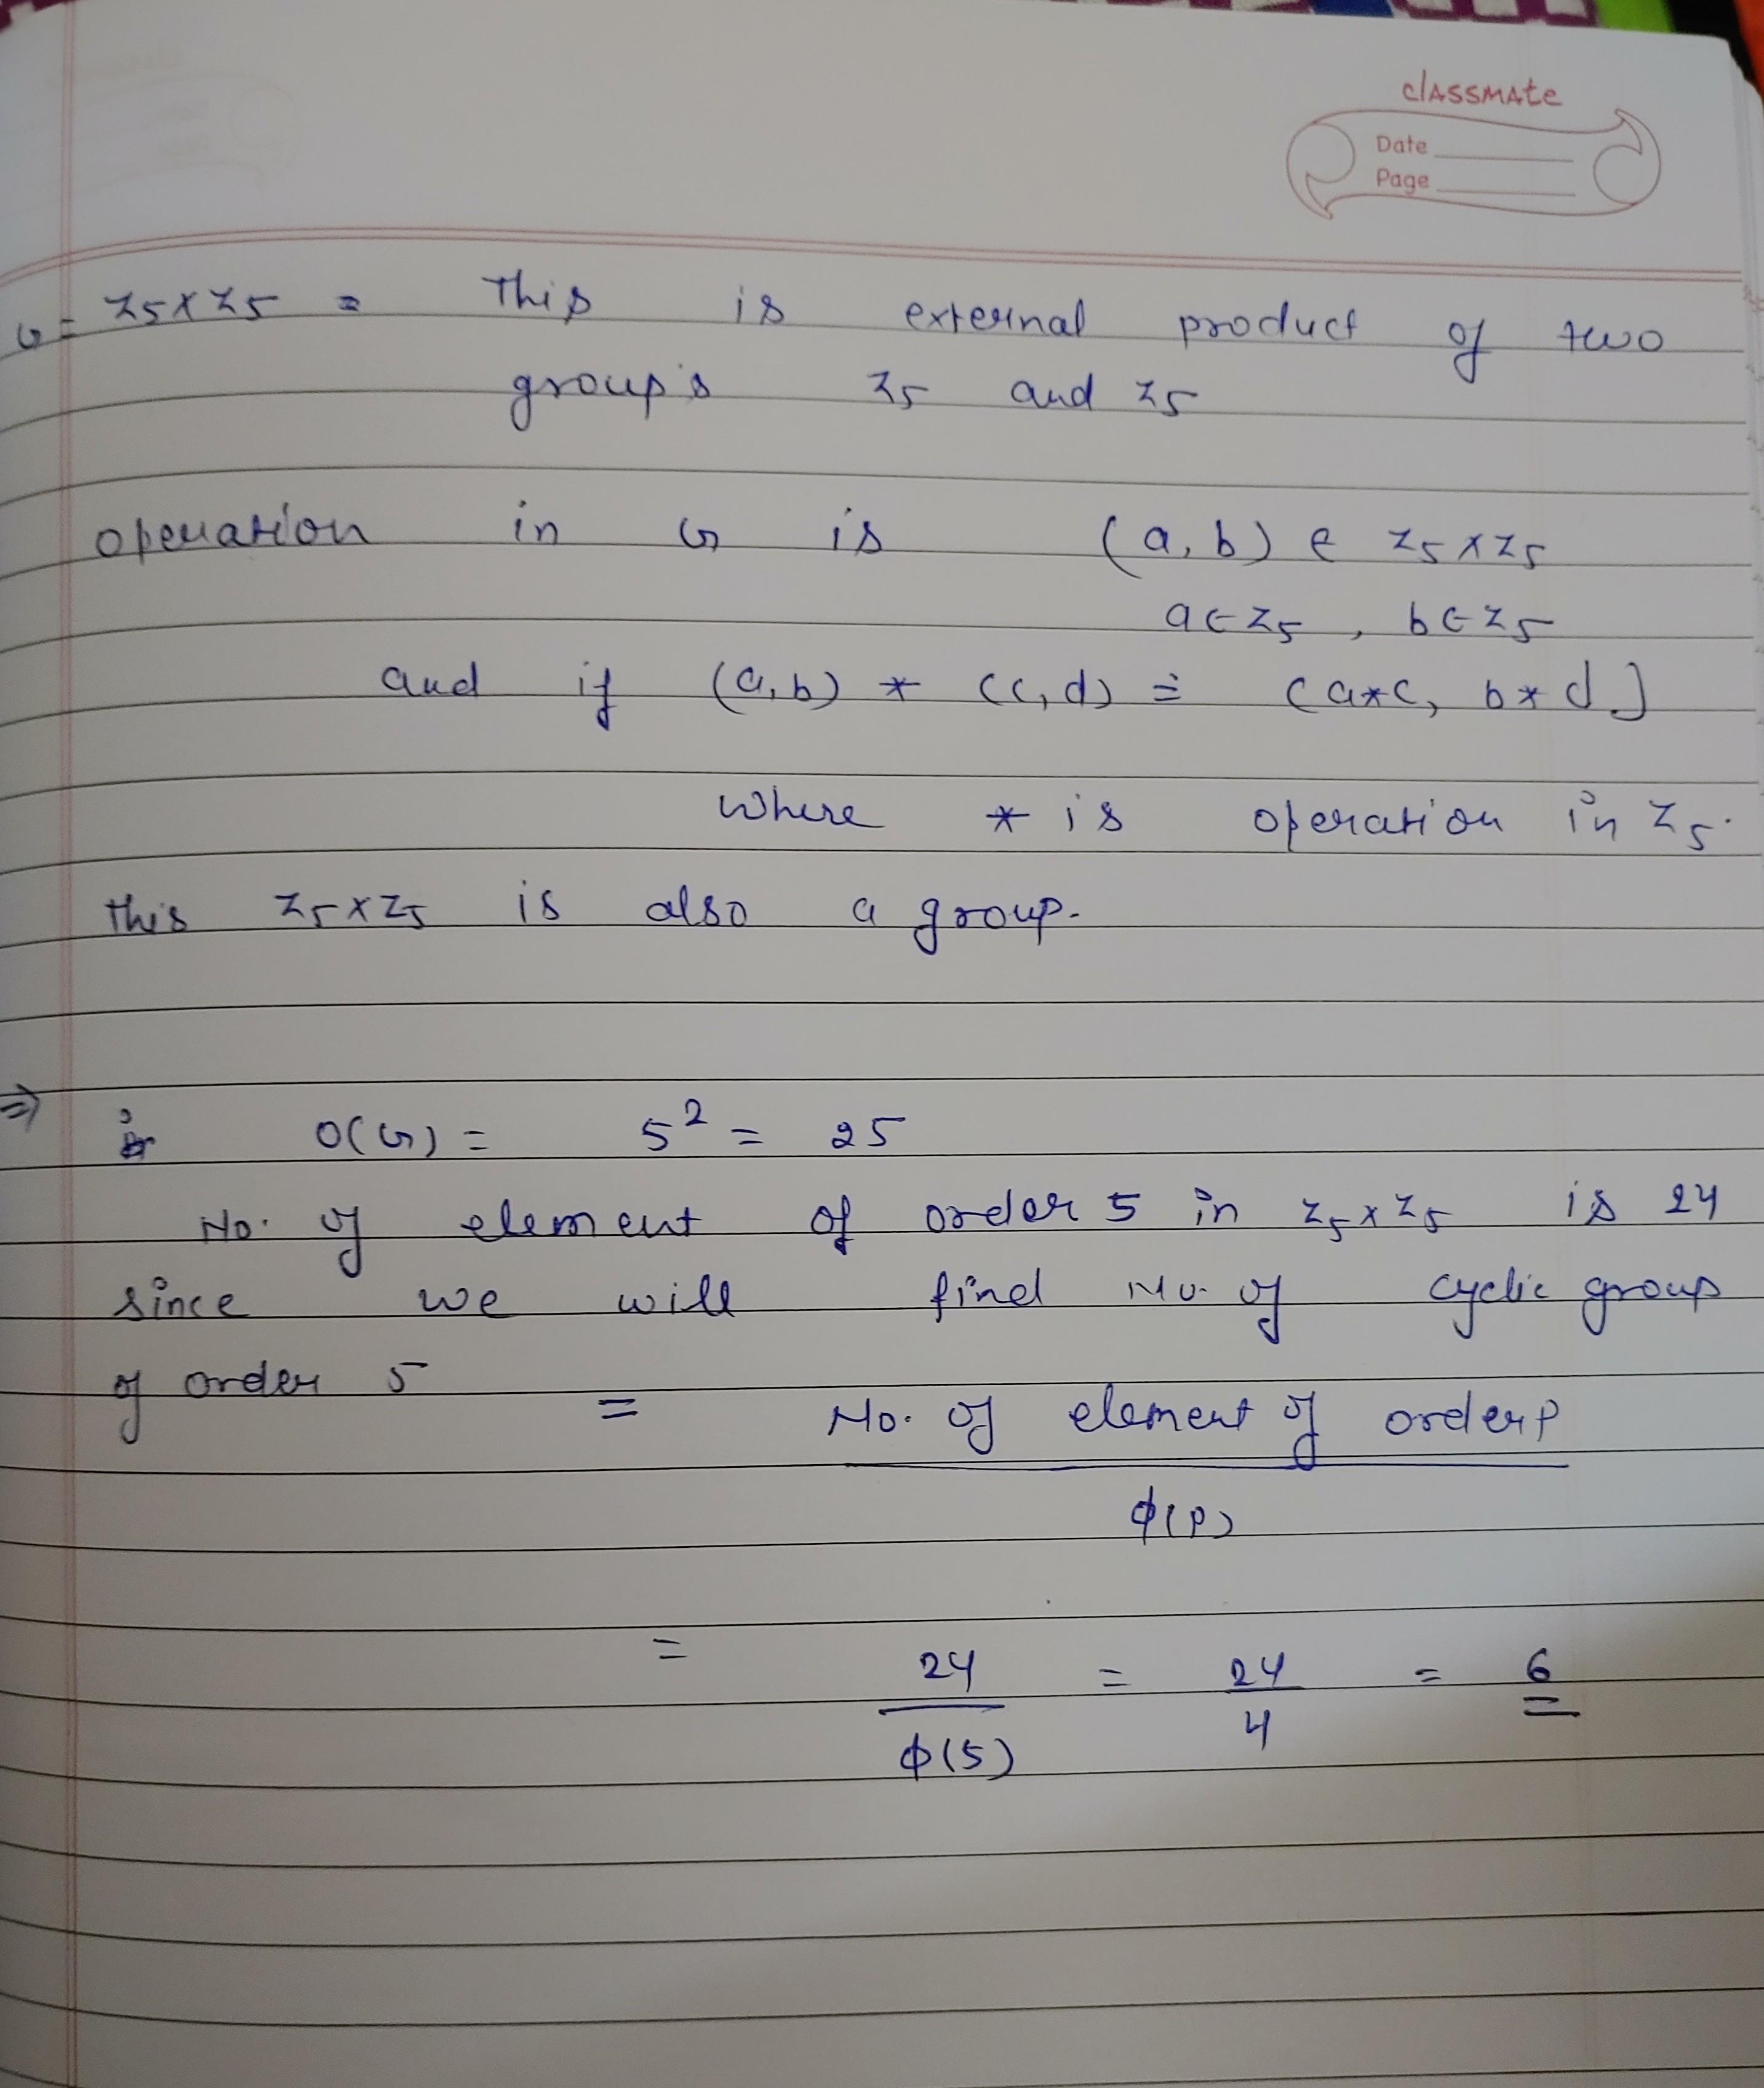 classmate
Date
Page
G = Z5 x Z5 = This is external product of two
group's Z5 and Z5
operation in G is (a, b) ∈ Z5 x Z5
a ∈ Z5 , b ∈ Z5
and if (a, b) * (c, d) = (a*c, b*d)
where * is operation in Z5.
this Z5 x Z5 is also a group.
⇒ O(G) = 5² = 25
No. of element of order 5 in Z5 x Z5 is 24
since we will find No. of cyclic group
of order 5 = No. of element of order p
ϕ(p)
= 24 = 24 = 6
ϕ(5) 4